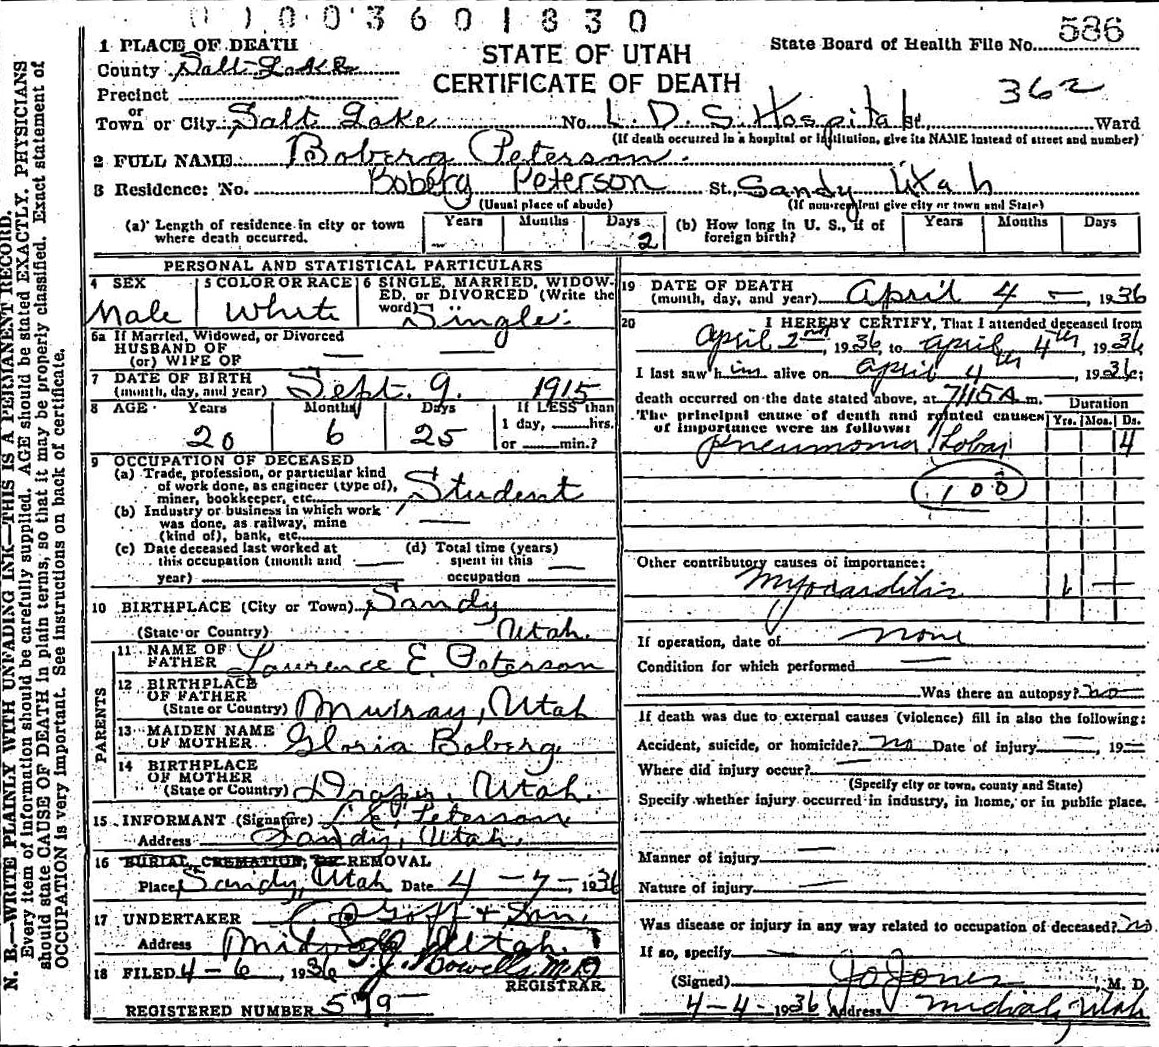 0 1 0 0 3 6 0 1 8 3 0
586
1 PLACE OF DEATH
STATE OF UTAH
State Board of Health File No.
County Salt Lake
CERTIFICATE OF DEATH
362
Precinct
or
Town or City Salt Lake No. L. D. S. Hospital St., Ward
(If death occurred in a hospital or institution, give its NAME instead of street and number)
2 FULL NAME Boberg Peterson.
3 Residence: No. Boberg Peterson St. Sandy Utah
(Usual place of abode) (If non-resident give city or town and State)
(a) Length of residence in city or town where death occurred. Years Months Days 2 (b) How long in U. S., if of foreign birth? Years Months Days
PERSONAL AND STATISTICAL PARTICULARS
4 SEX Male
5 COLOR OR RACE White
6 SINGLE, MARRIED, WIDOWED, or DIVORCED (Write the word) Single.
5a If Married, Widowed, or Divorced
HUSBAND OF
(or) WIFE OF
7 DATE OF BIRTH
(month, day, and year) Sept. 9. 1915
8 AGE Years Months Days If LESS than
20 6 25 1 day, hrs.
or min.?
9 OCCUPATION OF DECEASED
(a) Trade, profession, or particular kind
of work done, as engineer (type of),
miner, bookkeeper, etc. Student
(b) Industry or business in which work
was done, as railway, mine
(kind of), bank, etc.
(c) Date deceased last worked at
this occupation (month and
year)
(d) Total time (years)
spent in this
occupation
10 BIRTHPLACE (City or Town) Sandy
(State or Country) Utah.
PARENTS
11 NAME OF
FATHER Laurence E. Peterson
12 BIRTHPLACE
OF FATHER
(State or Country) Murray, Utah
13 MAIDEN NAME
OF MOTHER Gloria Boberg
14 BIRTHPLACE
OF MOTHER
(State or Country) Draper, Utah.
15 INFORMANT (Signature) L E. Peterson
Address Sandy, Utah.
16 BURIAL, CREMATION, OR REMOVAL
Place Sandy, Utah Date 4 - 7 -, 1936
17 UNDERTAKER Goff & Son.
Address Midvale Utah.
18 FILED 4-6, 1936 M.D
REGISTRAR.
REGISTERED NUMBER 579
19 DATE OF DEATH
(month, day, and year) April 4 -, 1936
20 I HEREBY CERTIFY, That I attended deceased from
April 2nd, 1936, to April 4th, 1936
I last saw him alive on April 4th, 1936;
death occurred on the date stated above, at 7:15 A. m. Duration
The principal cause of death and related causes of importance were as follows: Yrs. Mos. Ds.
Pneumonia Lobar 4
108
Other contributory causes of importance:
Myocarditis
If operation, date of none
Condition for which performed
Was there an autopsy? no
If death was due to external causes (violence) fill in also the following:
Accident, suicide, or homicide? no Date of injury, 19
Where did injury occur?
(Specify city or town, county and State)
Specify whether injury occurred in industry, in home, or in public place.
Manner of injury
Nature of injury
Was disease or injury in any way related to occupation of deceased? no
If so, specify
(Signed) Jones, M. D.
4-4-1936 Address Midvale, Utah
N. B.—WRITE PLAINLY WITH UNFADING INK—THIS IS A PERMANENT RECORD.
Every item of information should be carefully supplied. AGE should be stated EXACTLY. PHYSICIANS
should state CAUSE OF DEATH in plain terms, so that it may be properly classified. Exact statement of
OCCUPATION is very important. See instructions on back of certificate.